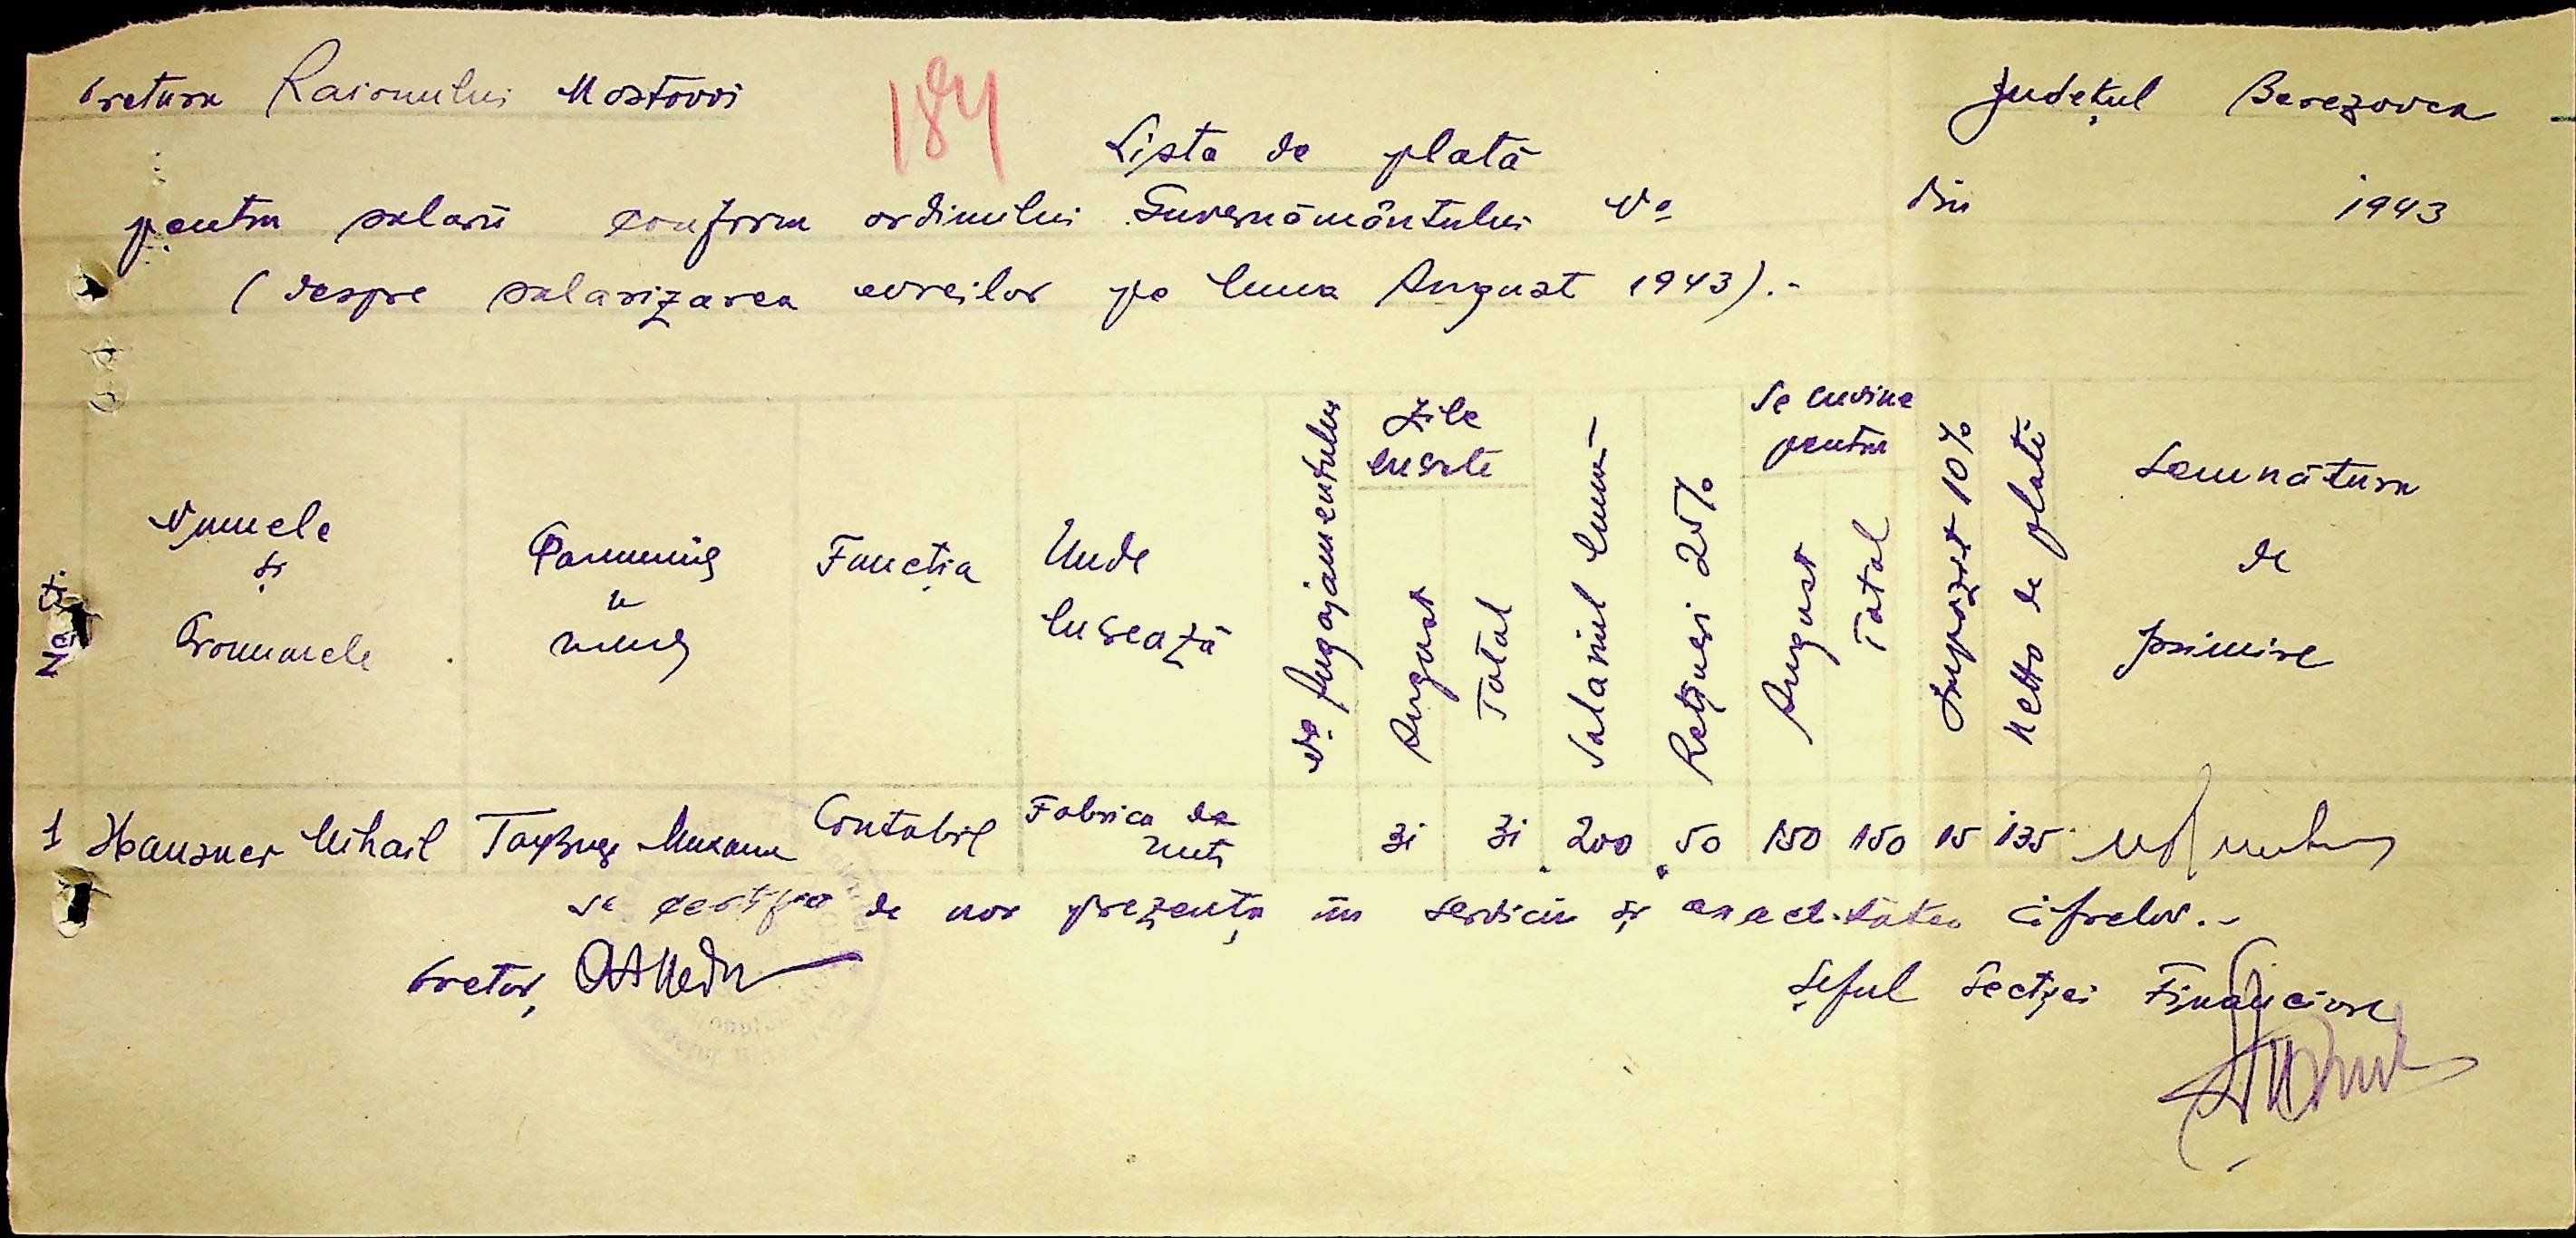 Pretura Raionului Mostovoi
184
Județul Berezovca
Lista de plată
pentru salarii conform ordinului Guvernămăntului No din 1943
(despre salarizarea evreilor pe luna August 1943).-
No ct.
Numele și Pronumele
Фамилия и имя
Funcția
Unde lucrează
No Angajamentului
Zile lucrate
August
Total
Salariul lunar
Rețineri 25%
Se cuvine pentru
August
Total
Impozit 10%
Netto de plată
Semnătura de primire
1 Hausner Mihail Гаузнер Михаил Contabil Fabrica de 31 31 200 50 150 150 15 135
Se certifică de noi prezența in serviciu și exactitatea cifrelor.-
Pretor,
Șeful Secției Financiare